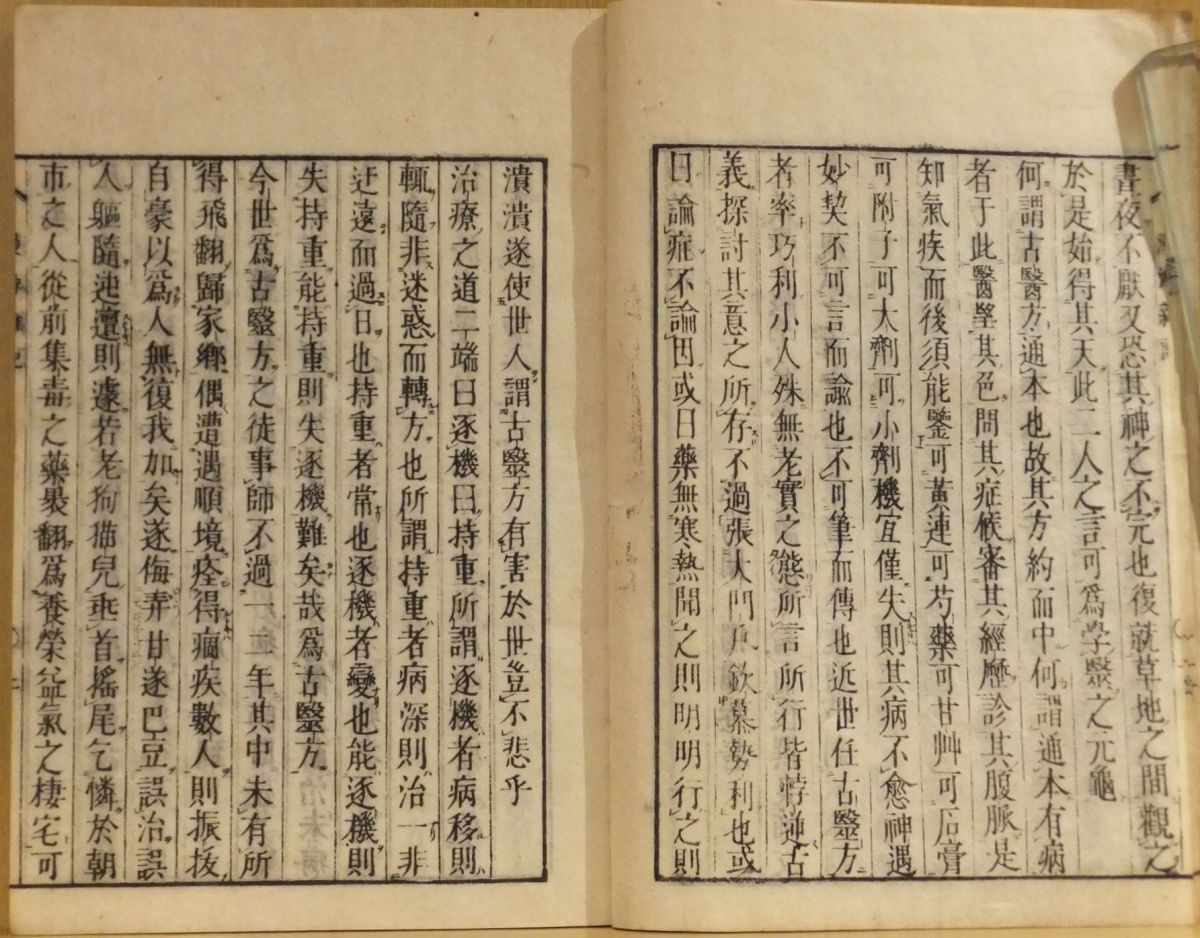 晝夜不厭又恐其神之不完也復就草地之間觀之
於是始得其天此二人之言可爲學毉之元龜
何謂古醫方通本也故其方約而中何謂通本有病
者于此醫望其色問其症候審其經歷診其腹脈是
知氣疾而後須能鑒可黃連可芍藥可甘艸可石膏
可附子可大劑可小劑機宜僅失則其病不愈神遇
妙契不可言而諭也不可筆而傳也近世任古毉方
者率巧利小人殊無老實之態所言所行皆悖逆古
義探討其意之所存不過張大門戶欽慕勢利也或
曰論症不論因或曰藥無寒熱聞之則明明行之則
潰潰遂使世人謂古毉方有害於世豈不悲乎
治療之道二端曰逐機曰持重所謂逐機者病移則
輒隨非迷惑而轉方也所謂持重者病深則治一非
迂遠而過日也持重者常也逐機者變也能逐機則
失持重能持重則失逐機難矣哉爲古毉方
今世爲古毉方之徒事師不過一二年其中未有所
得飛翻歸家鄉偶遭遇順境痊得痼疾數人則振拔
自豪以爲人無復我加矣遂侮弄甘遂巴豆誤治誤
人軀隨迍邅則遽若老狗猫兒乖首搖尾乞憐於朝
市之人從前集毒之藥裂翻爲養榮益氣之棲宅可